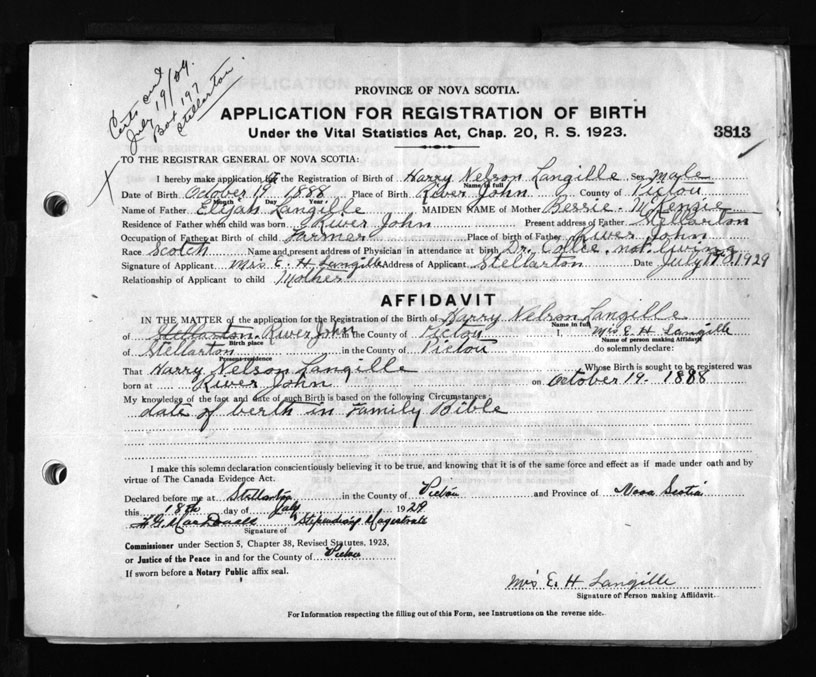 Certs out
July 19/29.
Box 197
Stellarton.
PROVINCE OF NOVA SCOTIA.
APPLICATION FOR REGISTRATION OF BIRTH
Under the Vital Statistics Act, Chap. 20, R. S. 1923.
3813
TO THE REGISTRAR GENERAL OF NOVA SCOTIA:
I hereby make application for the Registration of Birth of Harry Nelson Langille Sex Male
Name in full
Date of Birth October 19 1888 Place of Birth River John County of Pictou
Month Day Year
Name of Father Elijah Langille MAIDEN NAME of Mother Bessie McKenzie
Residence of Father when child was born River John Present address of Father Stellarton
Occupation of Father at Birth of child Farmer Place of birth of Father River John
Race Scotch Name and present address of Physician in attendance at birth Dr. not living
Signature of Applicant Mrs E. H. Langille Address of Applicant Stellarton Date July 1929
Relationship of Applicant to child Mother
AFFIDAVIT
IN THE MATTER of the application for the Registration of the Birth of Harry Nelson Langille
Name in full
of Stellarton River John in the County of Pictou I, Mrs E. H Langille
Birth place Name of person making Affidavit
of Stellarton in the County of Pictou do solemnly declare:
Present residence
That Harry Nelson Langille Whose Birth is sought to be registered was
born at River John on October 19- 1888
My knowledge of the fact and date of such Birth is based on the following Circumstances:
date of berth in Family Bible
I make this solemn declaration conscientiously believing it to be true, and knowing that it is of the same force and effect as if made under oath and by
virtue of The Canada Evidence Act.
Declared before me at Stellarton in the County of Pictou and Province of Nova Scotia
this 18th day of July 1929
MacDonald Stipendiary Magistrate
Signature of
Commissioner under Section 5, Chapter 38, Revised Statutes, 1923,
or Justice of the Peace in and for the County of Pictou
If sworn before a Notary Public affix seal.
Mrs E. H Langille
Signature of Person making Affidavit.
For Information respecting the filling out of this Form, see Instructions on the reverse side.